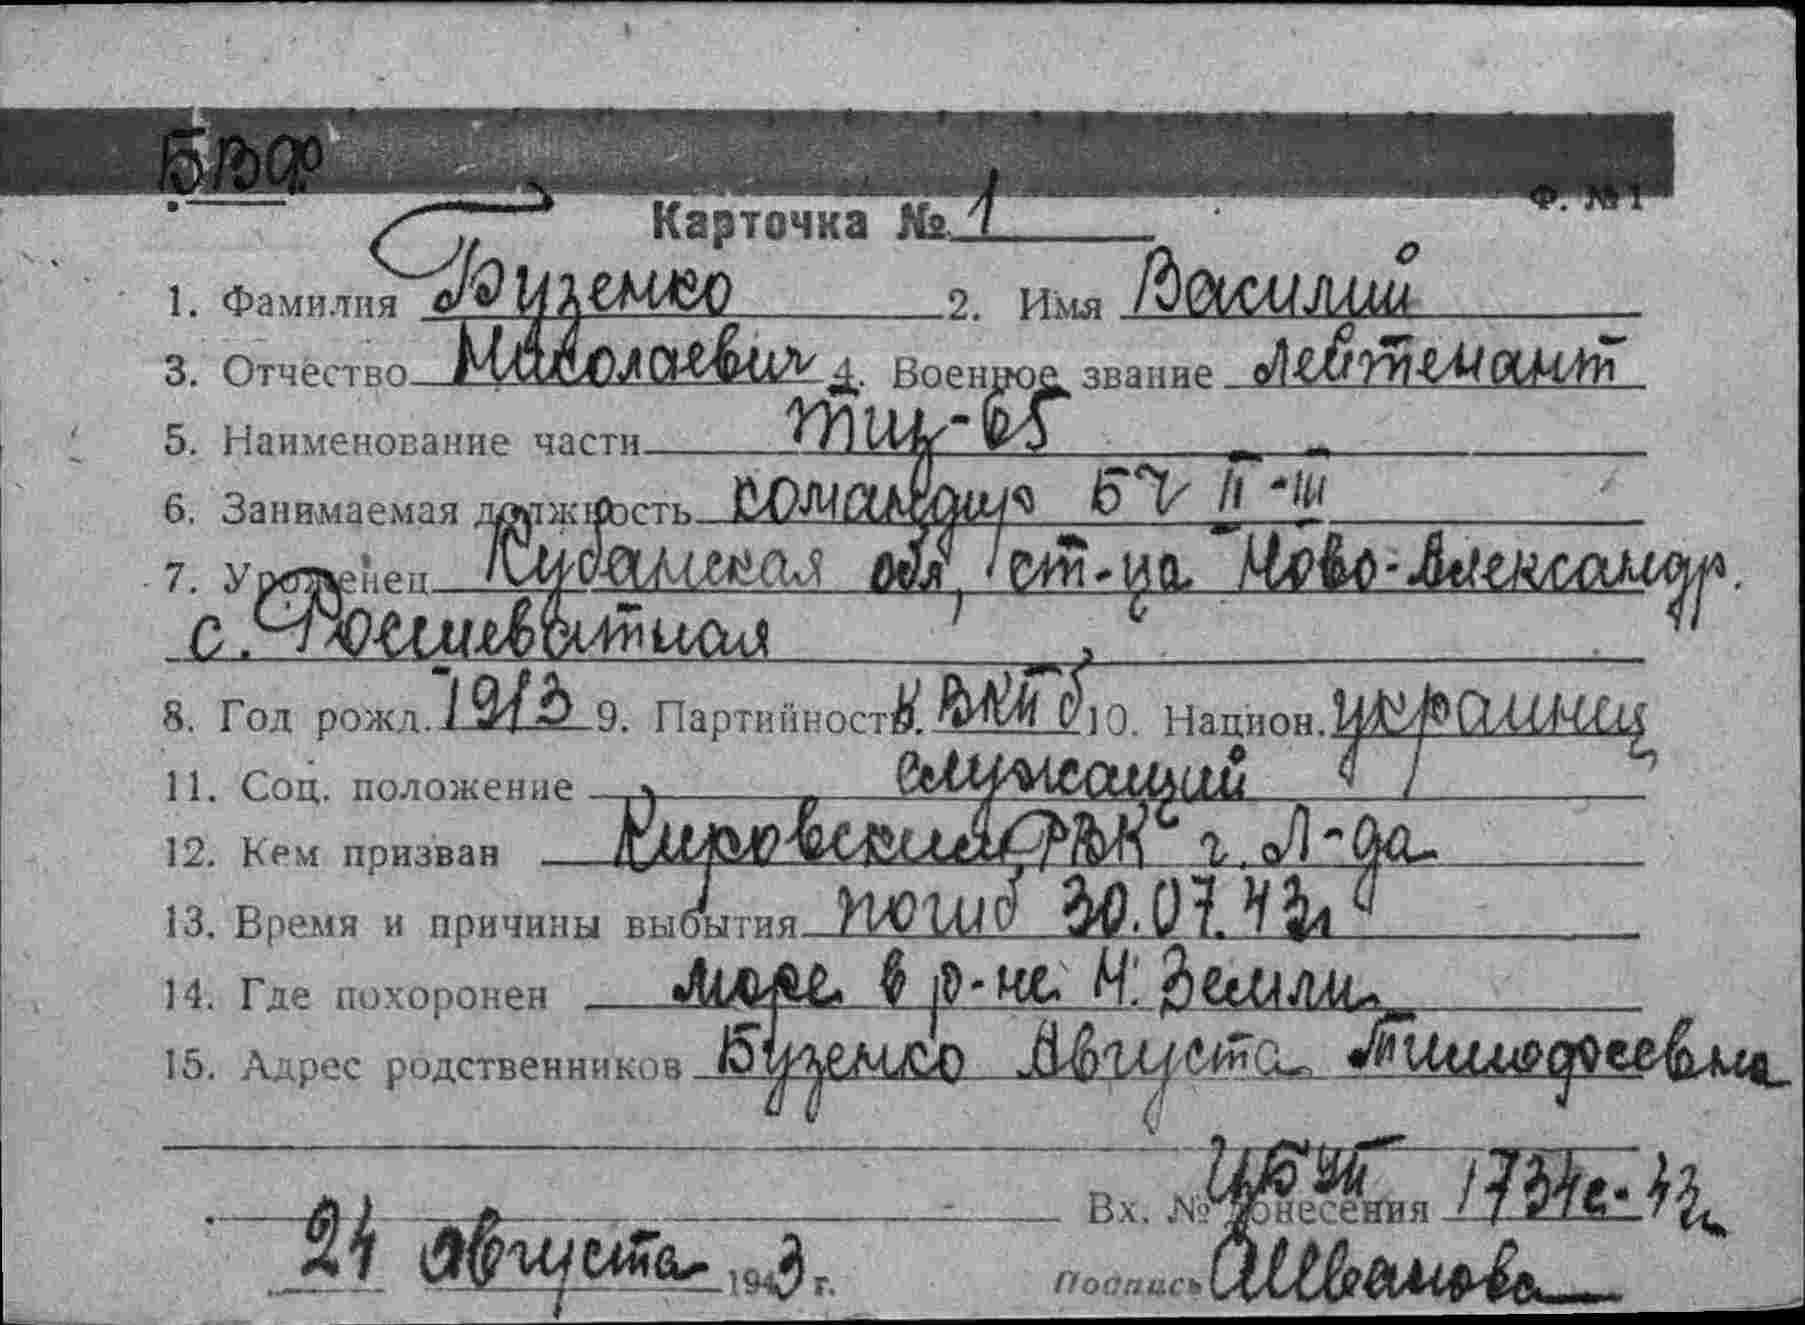 БВФ
Ф. № 1
Карточка № 1
1. Фамилия Бузенко 2. Имя Василий
3. Отчество Николаевич 4. Военное звание лейтенант
5. Наименование части тщ-65
6. Занимаемая должность командир БЧ II-III
7. Уроженец Кубанская обл, ст-ца Ново-Александр.
с. Рошеватная
8. Год рожд. 1913 9. Партийность к. ВКП б 10. Национ. украинец
11. Соц. положение служащий
12. Кем призван Кировский РВК г. Л-да
13. Время и причины выбытия погиб 30.07.43г
14. Где похоронен море в р-не Н. Земли
15. Адрес родственников Бузенко Августа Тимофеевна
Вх. № донесения 1734с-43г
24 августа 1943 г. Подпись